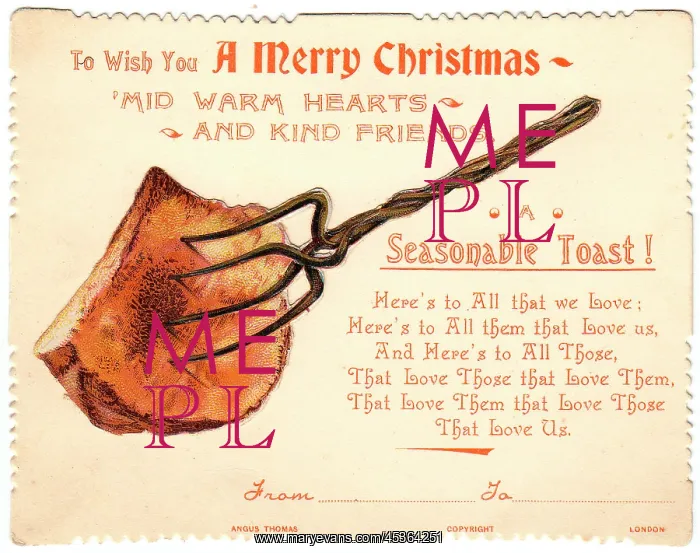 To Wish You A Merry Christmas
'MID WARM HEARTS
AND KIND FRIENDS.
ME
PL
A
Seasonable Toast!
Here's to All that we Love;
Here's to All them that Love us,
And Here's to All Those,
That Love Those that Love Them,
That Love Them that Love Those
That Love Us.
ME
PL
From To
ANGUS THOMAS COPYRIGHT LONDON
www.maryevans.com/45364251